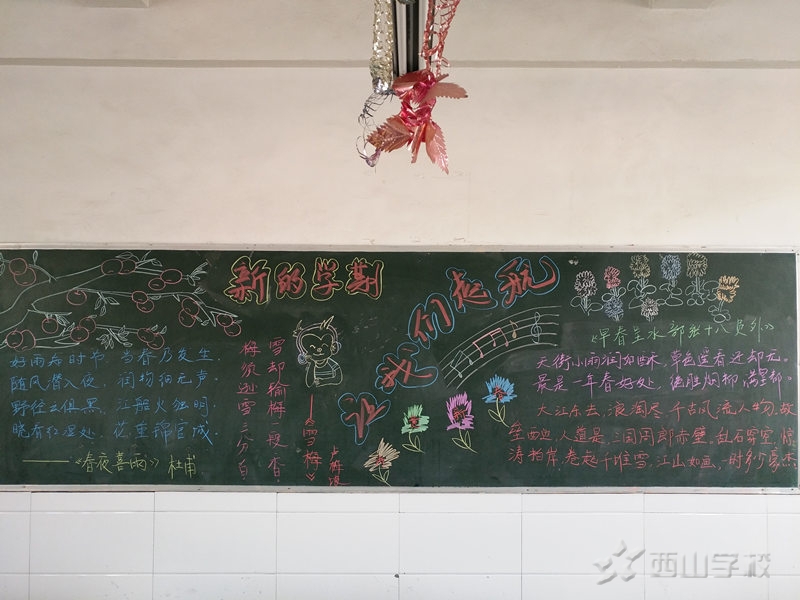 新的学期
让我们起航
好雨知时节，当春乃发生。
随风潜入夜，润物细无声
野径云俱黑，江船火独明
晓看红湿处，花重锦官城。
——《春夜喜雨》杜甫
梅须逊雪三分白
雪却输梅一段香
——《雪梅》
卢梅坡
《早春呈水部张十八员外》
天街小雨润如酥，草色遥看近却无。
最是一年春好处，绝胜烟柳满皇都。
大江东去，浪淘尽，千古风流人物，故
垒西边，人道是，三国周郎赤壁，乱石穿空，惊
涛拍岸，卷起千堆雪，江山如画，一时多少豪杰
西山学校